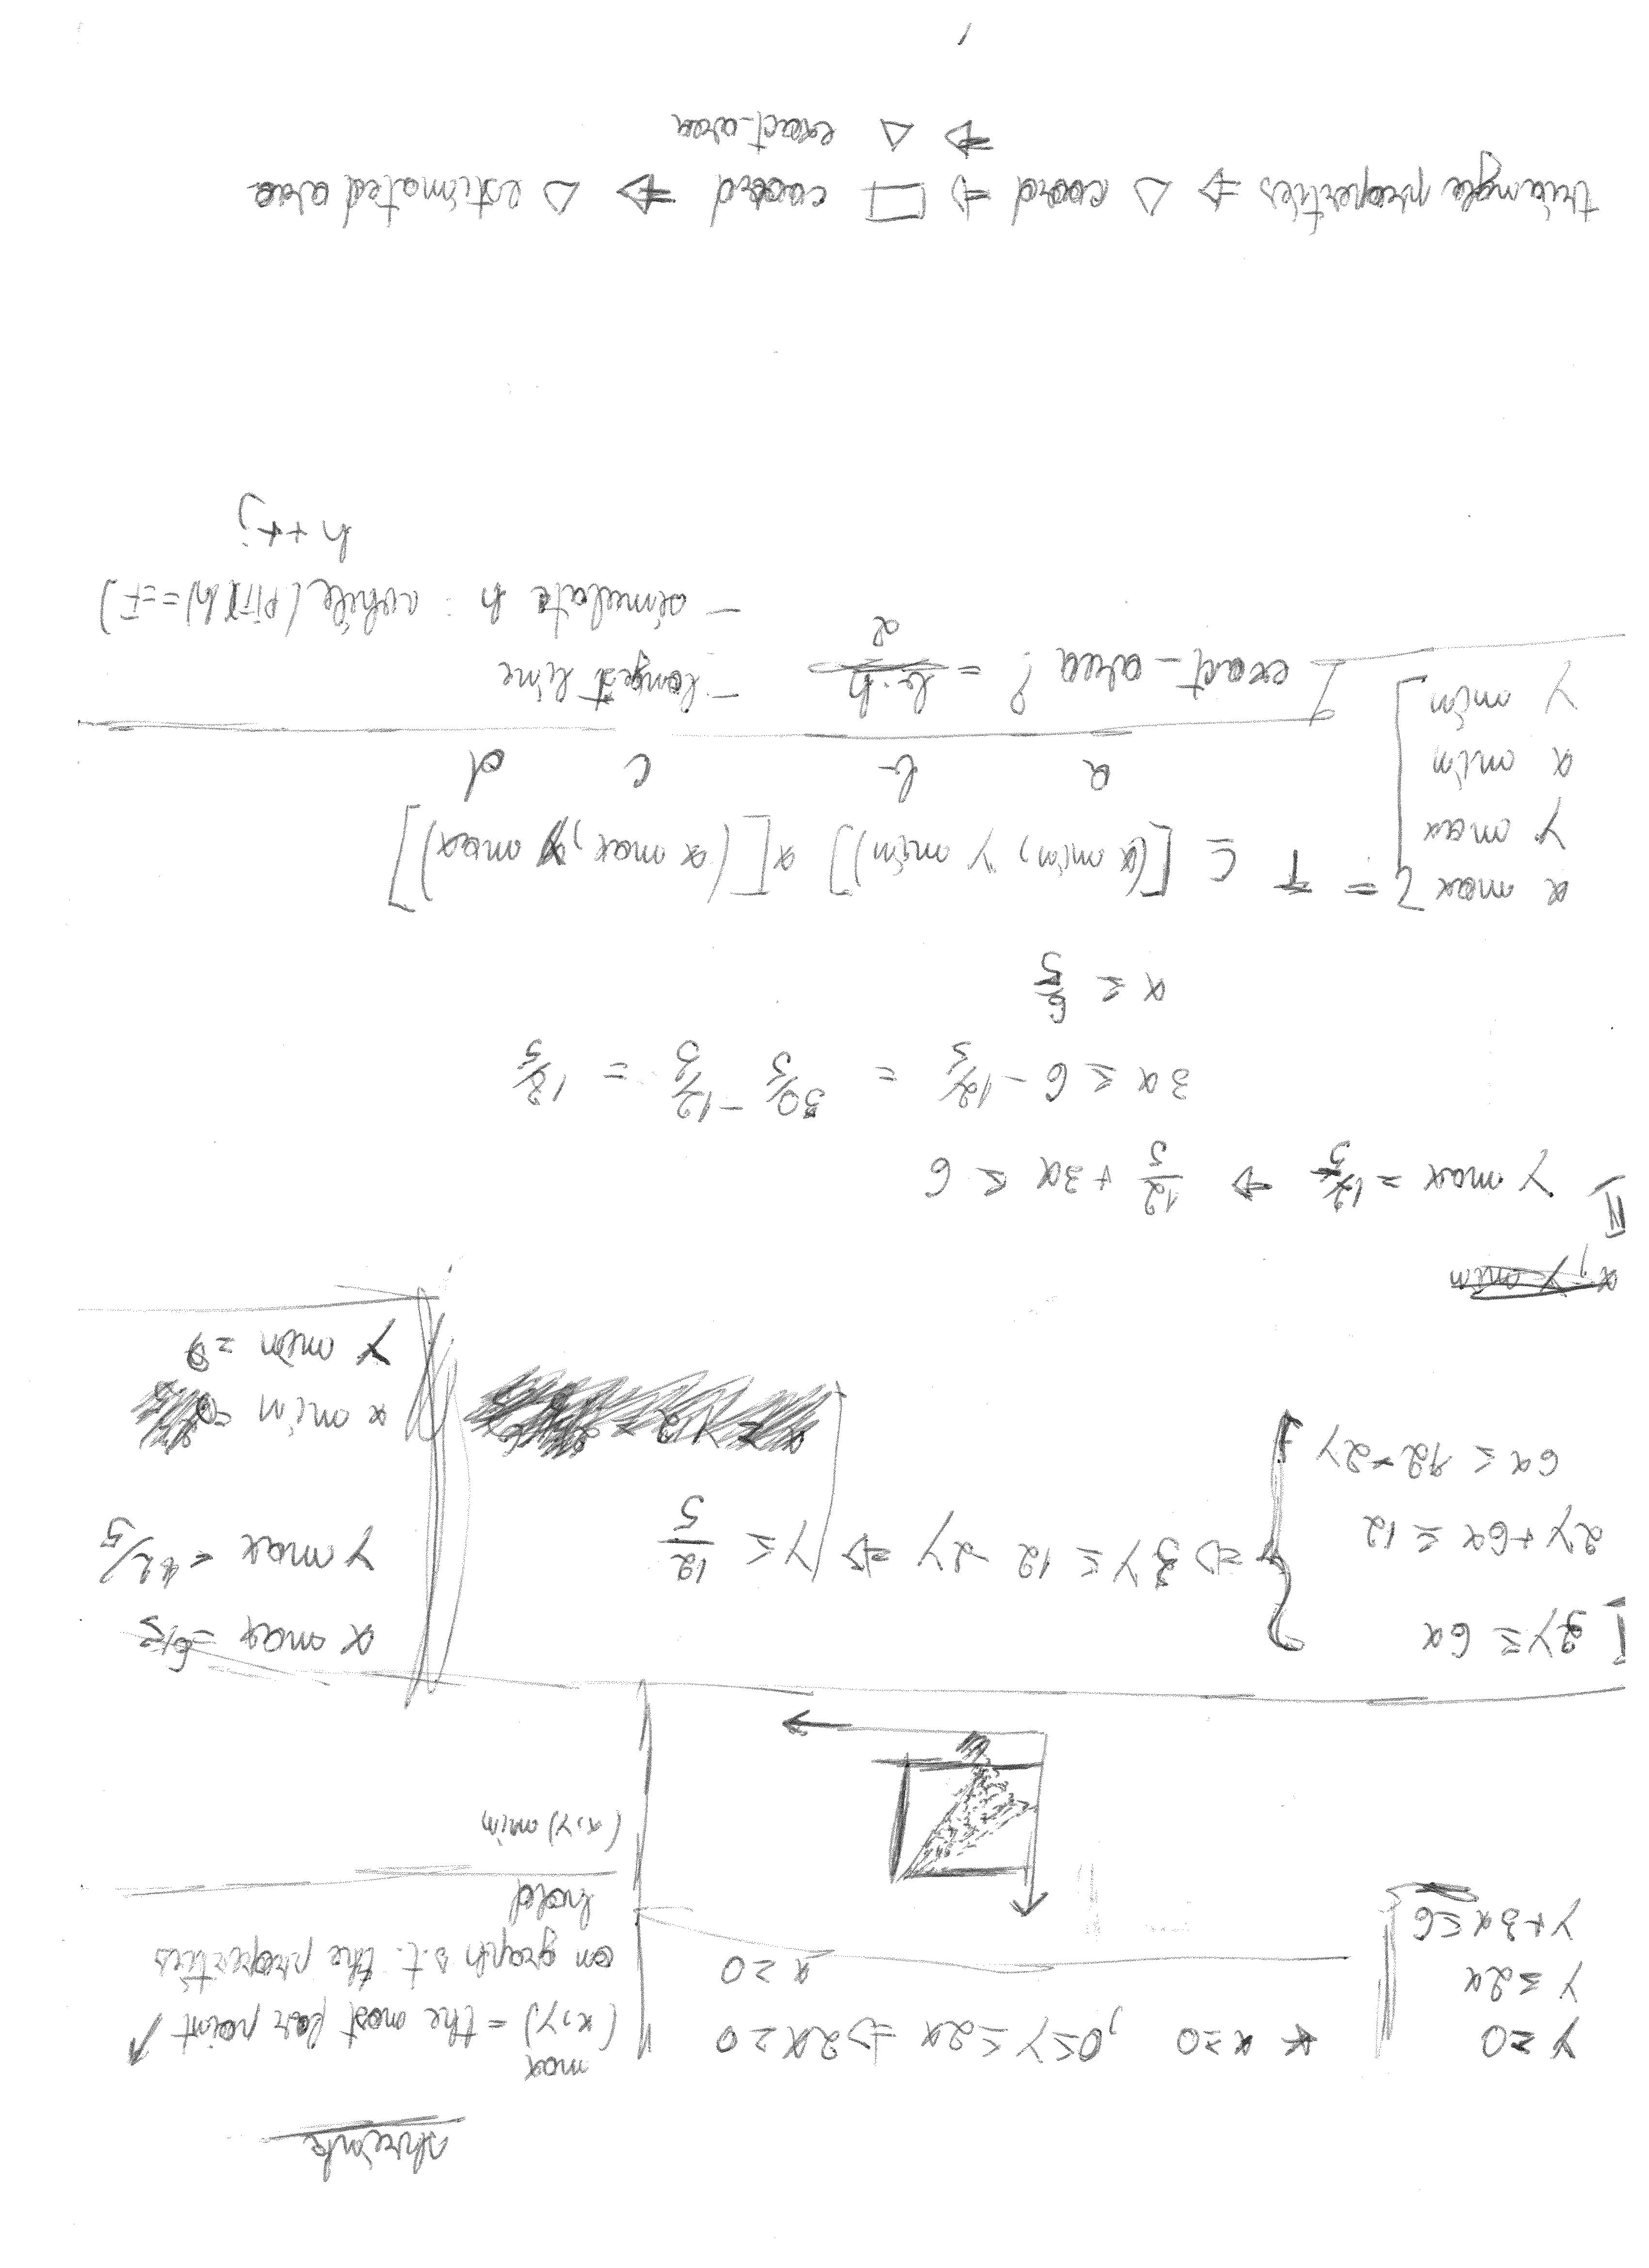 shrink
y ≥ 0
y ≤ 2x
y + 3x ≤ 6
* x ≥ 0 , 0 ≤ y ≤ 2x ⇒ 2x ≥ 0
x ≥ 0
max
(x, y) = the most far point ↗
on graph s.t. the properties
hold
(x, y) min
I 3y ≤ 6x
2y + 6x ≤ 12
6x ≤ 12 - 2y
⇒ 3y ≤ 12 - 2y ⇒ y ≤ 12/5
x max = 6/5
y max = 12/5
x min =
y min = 0
x, y min
II y max = 12/5 ⇒ 12/5 + 3x ≤ 6
3x ≤ 6 - 12/5 = 30/5 - 12/5 = 18/5
x ≤ 6/5
x max
y max
x min
y min
= T ⊆ [(x min, y min)] x [(x max, y max)]
a b c d
exact_area? = b·h/2
- longest line
- simulate h : while ( (h) == F)
h++;
triangle properties ⇒ △ coord ⇒ ▭ coord ⇒ △ estimated area
⇒ △ exact_area